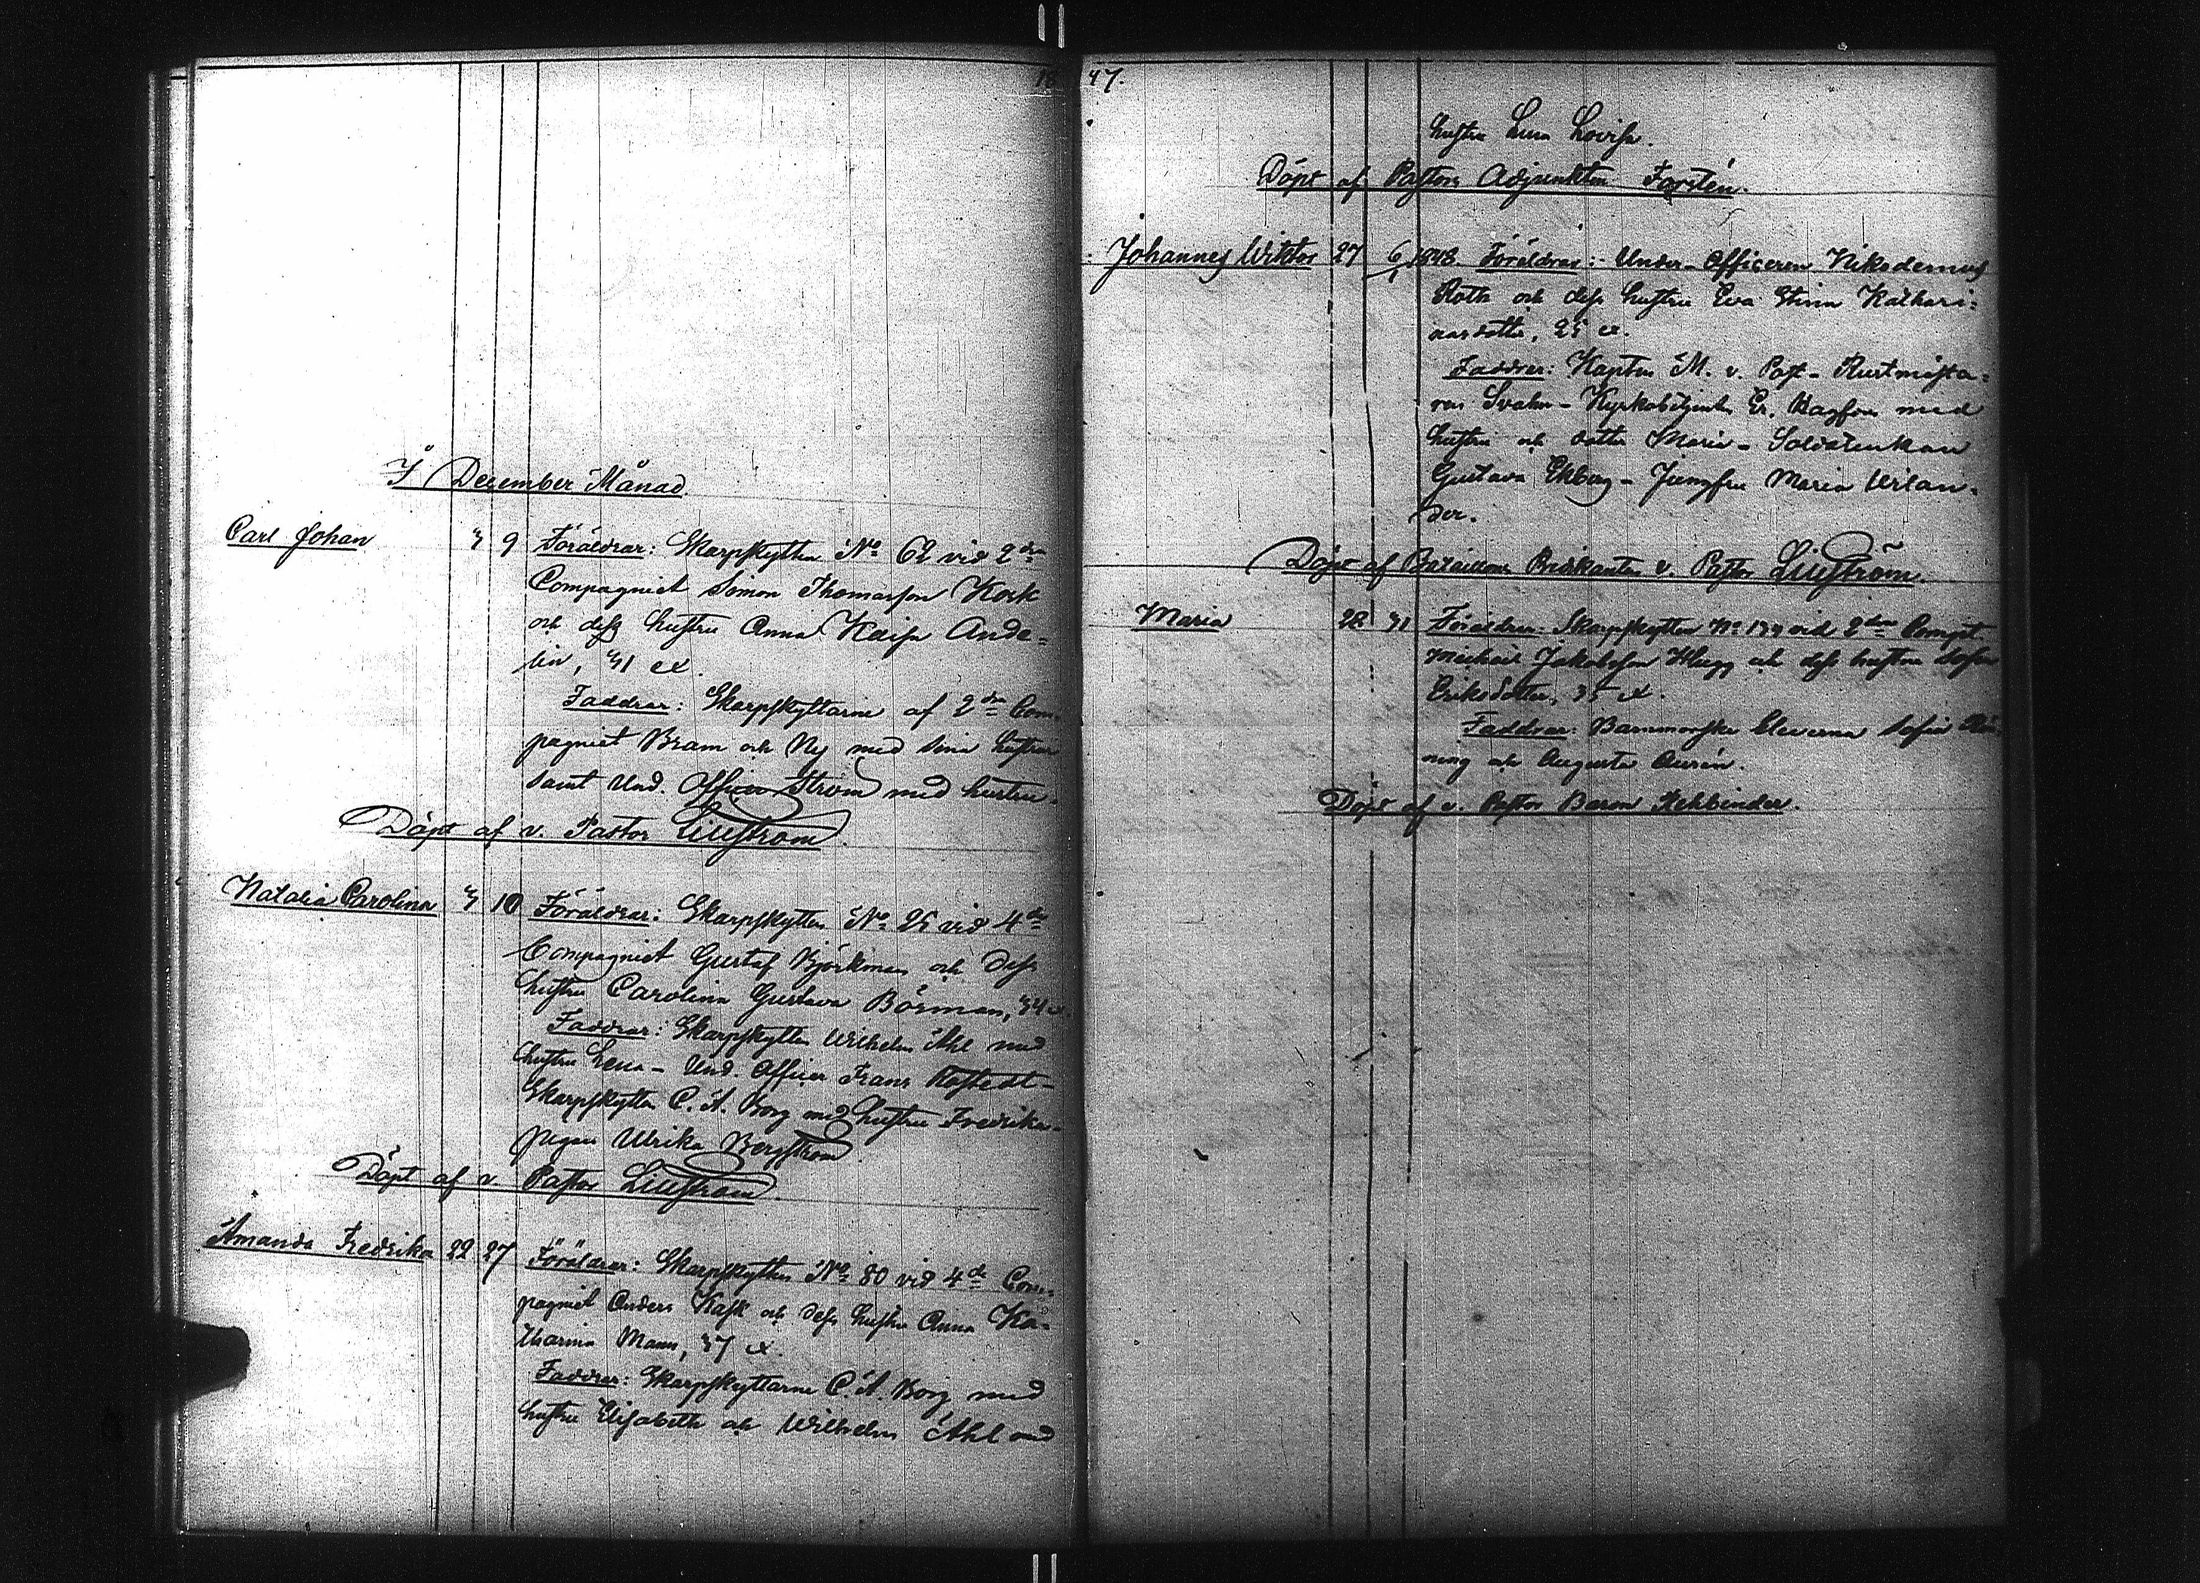 1847.
I December Månad.
Carl Johan 3 9 Föräldrar: Skarpskytten No 62 vid 2dra
Compagniet Simon Thomasson Kock
och dess hustru Anna Kaisa Ande-
lin, 31 år.
Faddrar: Skarpskyttarne af 2dra Com-
pagniet Bram och Ny med sina hustrur
samt Und. Officer Ström med hustru.
Döpt af v. Pastor Liljeström.
Natalia Carolina 3 10 Föräldrar: Skarpskytten No 25 vid 4de
Compagniet Gustaf Björkman och dess
hustru Carolina Gustava Börman, 34 år.
Faddrar: Skarpskytten Wilhelm Ahl med
hustru Lena - Und. Officer Frans Rostedt -
Skarpskytten C. A. Borg med hustru Fredrika -
pigan Ulrika Bergström
Döpt af v. Pastor Liljeström.
Amanda Fredrika 22 27 Föräldrar: Skarpskytten No 80 vid 4de Com-
pagniet Anders Kask och dess hustru Anna Ka-
tharina Mann, 37 år.
Faddrar: Skarpskyttarne C. A. Borg med
hustru Elisabeth och Wilhelm Ahl med
hustru Lena Lovisa.
Döpt af Pastors Adjunkten Forstén.
Johannes Wiktor 27 6/1 1848. Föräldrar: Under-Officeren Nikodemus
Roth och dess hustru Eva Stina Kathari-
nasdotter, 25 år.
Faddrar: Kapten M. v. Post - Rustmästa-
ren Svahn - Kyrkobetjenten Er. Hagfors med
hustru och dotter Maria - Soldatenkan
Gustava Ekberg - Jungfru Maria Wilan-
der.
Döpt af Bataillons Predikanten v. Pastor Liljeström.
Maria 28 31 Föräldrar: Skarpskytten No 133 vid 2dra Compt
Michail Jakobsson Hugg och dess hustru Sofia
Eriksdotter, 35 år.
Faddrar: Barnmorske Eleverna Sofia
ning och Augusta Aurén.
Döpt af v. Pastor Baron Rehbinder.